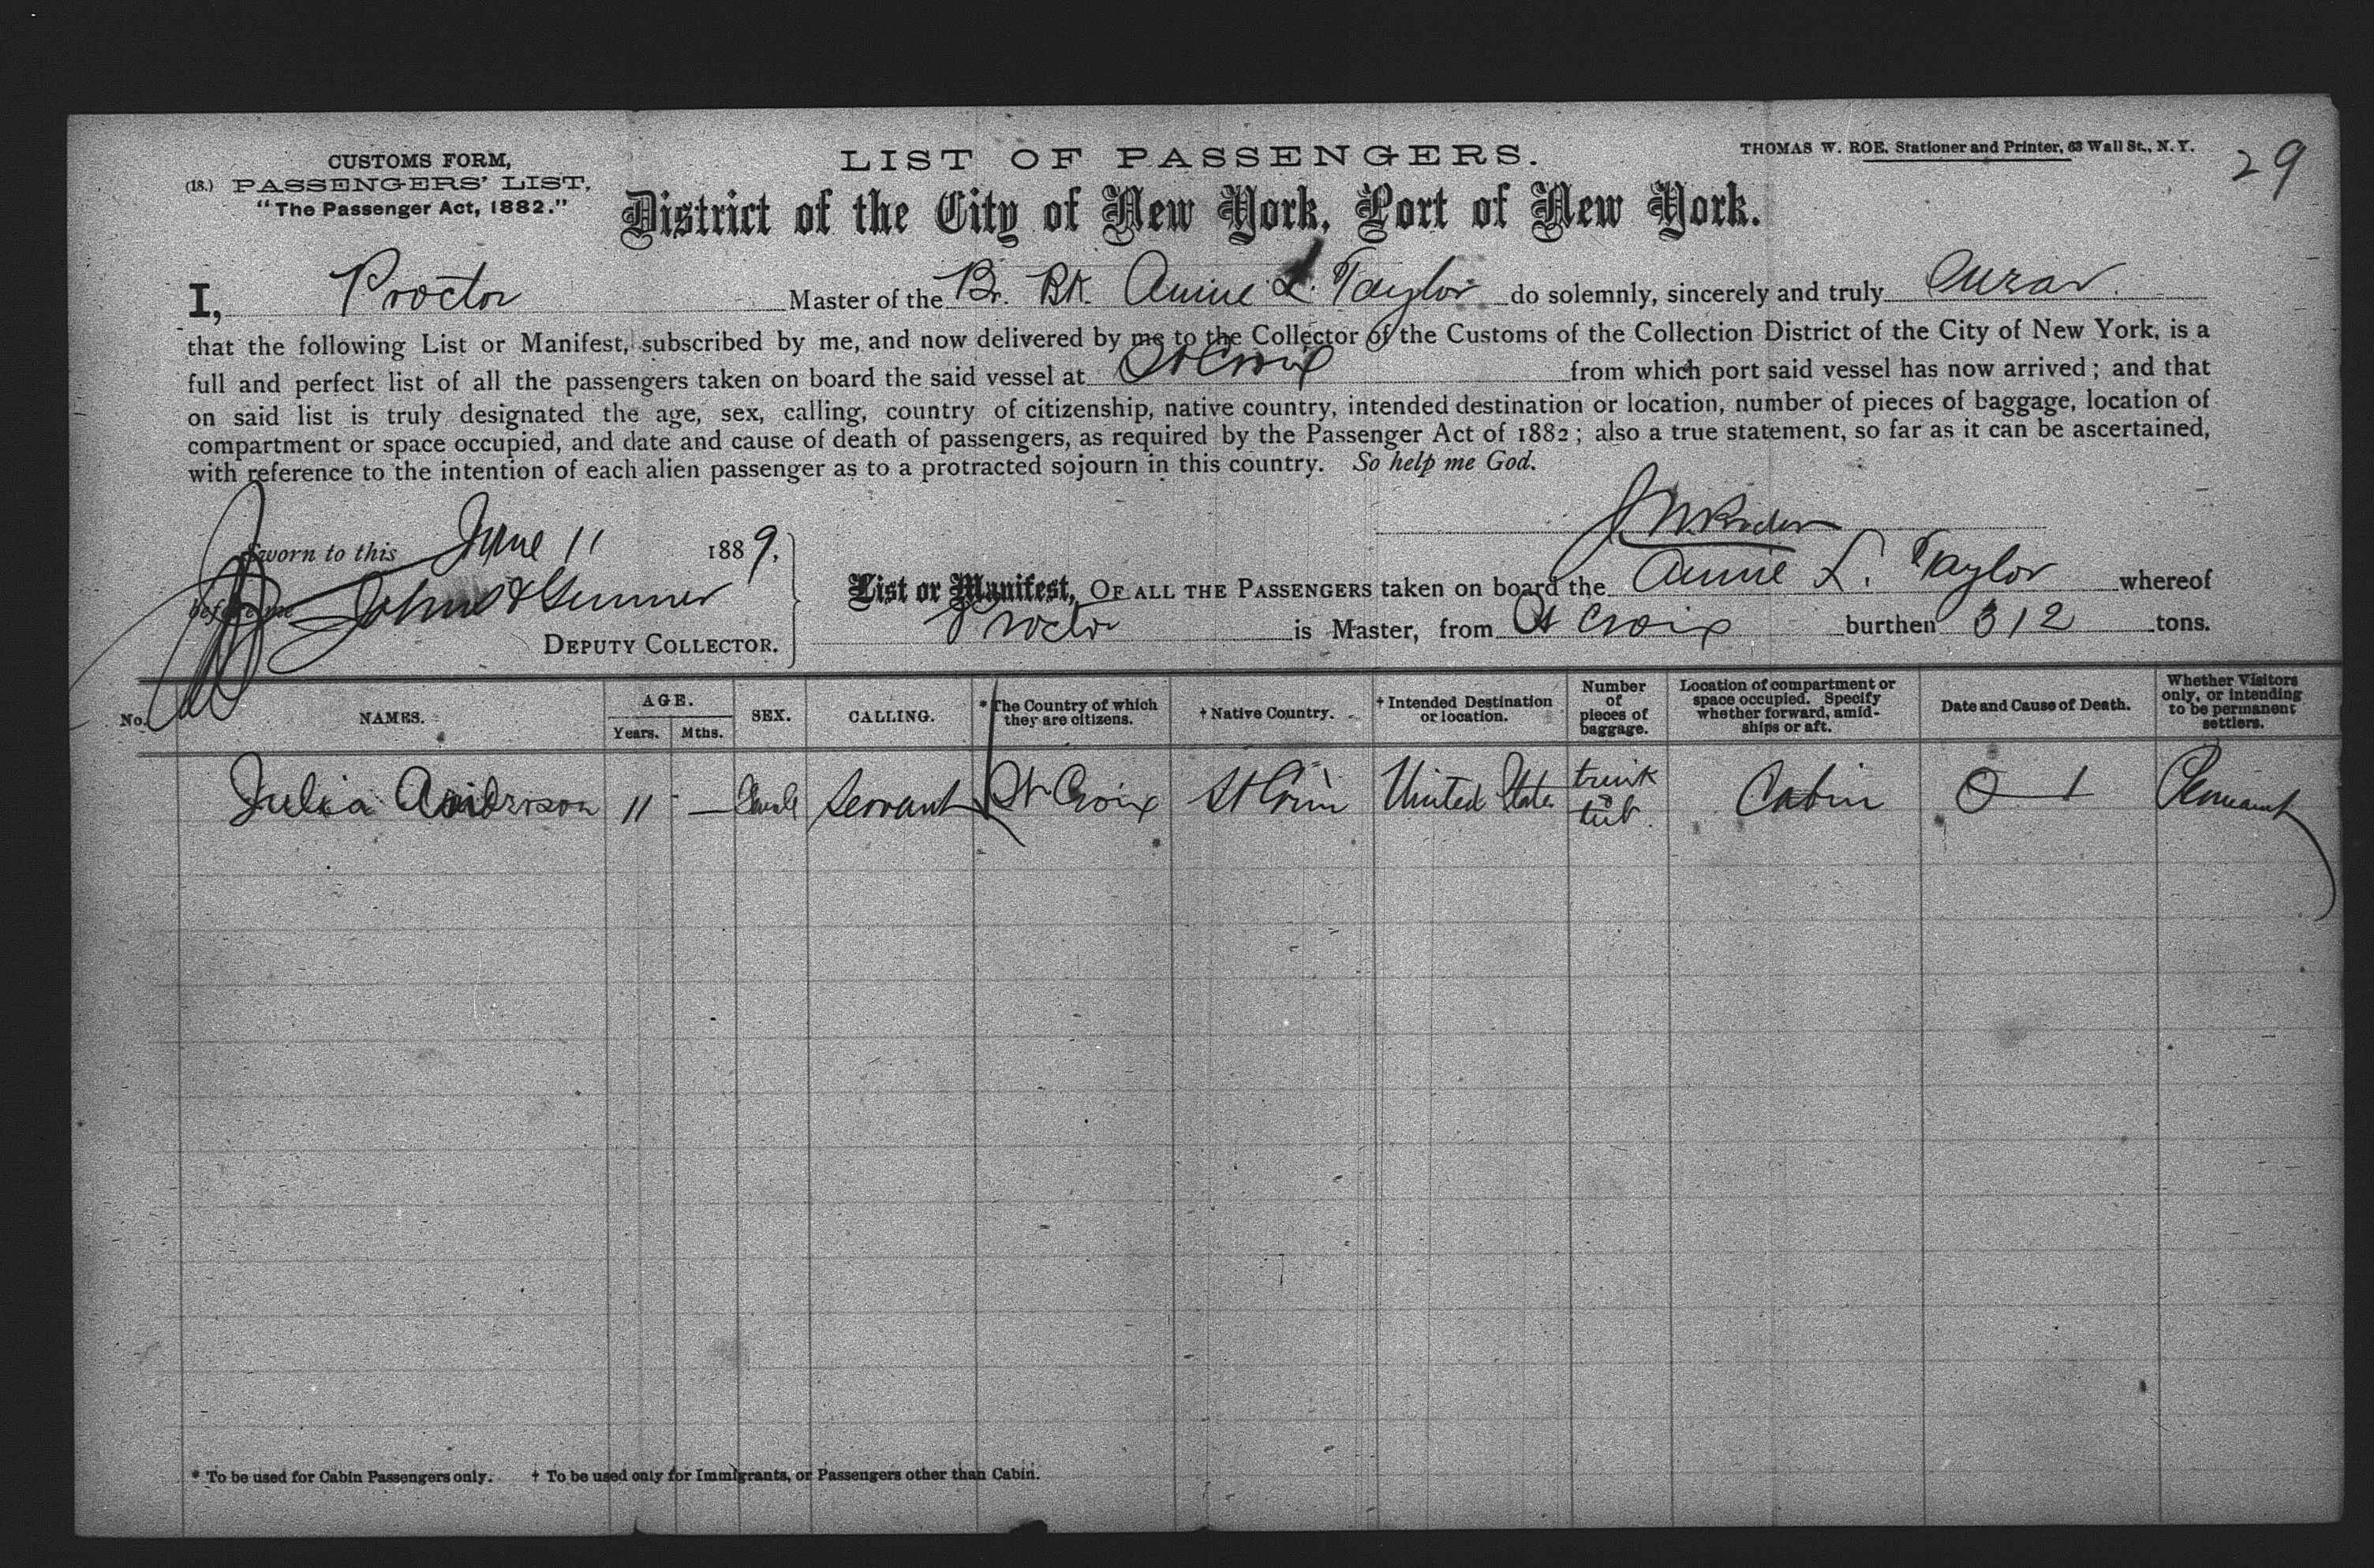 CUSTOMS FORM,
(18.) PASSENGERS' LIST,
"The Passenger Act, 1882."
LIST OF PASSENGERS.
THOMAS W. ROE, Stationer and Printer, 63 Wall St., N. Y.
29
District of the City of New York, Port of New York.
I, Proctor Master of the Br. Bk. Annie L. Taylor do solemnly, sincerely and truly swear
that the following List or Manifest, subscribed by me, and now delivered by me to the Collector of the Customs of the Collection District of the City of New York, is a
full and perfect list of all the passengers taken on board the said vessel at St Croix from which port said vessel has now arrived; and that
on said list is truly designated the age, sex, calling, country of citizenship, native country, intended destination or location, number of pieces of baggage, location of
compartment or space occupied, and date and cause of death of passengers, as required by the Passenger Act of 1882; also a true statement, so far as it can be ascertained,
with reference to the intention of each alien passenger as to a protracted sojourn in this country. So help me God.
Sworn to this June 11 1889.
before me
DEPUTY COLLECTOR.
List or Manifest, OF ALL THE PASSENGERS taken on board the Annie L. Taylor whereof
Proctor is Master, from St Croix burthen 312 tons.
No. NAMES. AGE. Years. Mths. SEX. CALLING. * The Country of which they are citizens. † Native Country. † Intended Destination or location. Number of pieces of baggage. Location of compartment or space occupied. Specify whether forward, amidships or aft. Date and Cause of Death. Whether Visitors only, or intending to be permanent settlers.
Julia Anderson 11 — Female Servant St Croix St Croix United States trunk tub Cabin Permanent
* To be used for Cabin Passengers only. † To be used only for Immigrants, or Passengers other than Cabin.